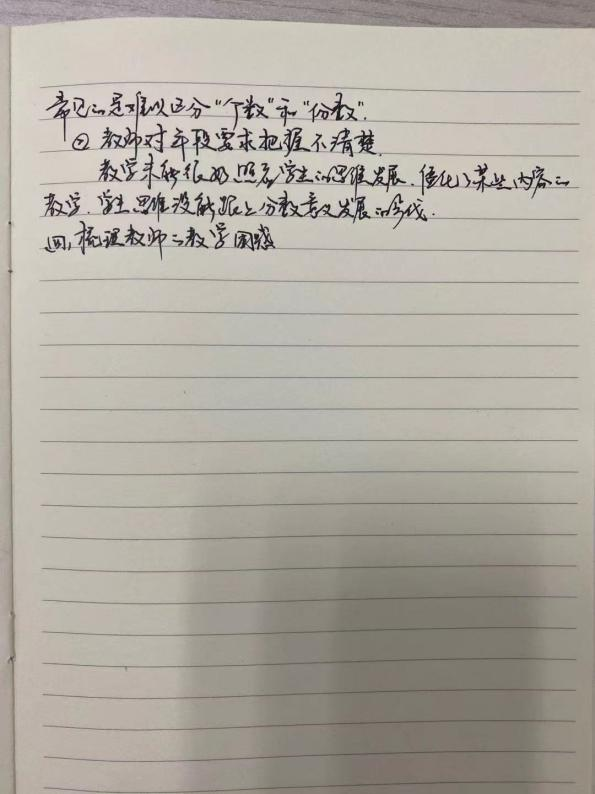 常见的是难以区分“个数”和“份数”.
② 教师对年段要求把握不清楚.
教学未能很好照看学生的思维发展.僵化了某些内容的
教学.学生思维没能跟上分数意义发展的
四,梳理教师的教学困惑